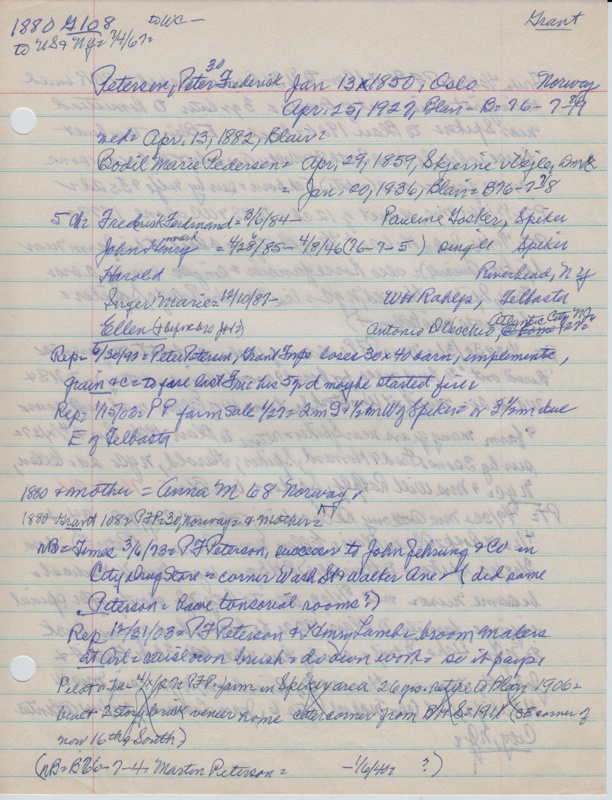 1880 G108 to WC - Grant
to US & Ng = 7/4/67 =
30
Peterson, Peter Frederick Jan 13 x 1850, Oslo Norway
Apr. 25, 1927, Blair = B = 76 - 7 -
med = Apr, 13, 1882, Blair =
Bodil Marie Pedersen = Apr, 29, 1859, Skjerne Vejle, Dmk
= Jan, 20, 1936, Blair = B76-7-8
5 ch Frederick Ferdinand = 3/6/84 - Pauline Gosker, Spiker
John Henry = 4/28/85 - 4/8/46 (76-7-5) single Spiker
Harold Riverhead, N Y
Inger Marie = 12/10/87 - Wm Rahlfs, Telbasta
Ellen Antonio Atlantic City NJ
Rep = 6/30/92 = Peter Peterson, Grant Twp loses 30 x 40 barn, implements,
grain & c = to fire last Fri = his 5 yr d maybe started fire
Rep = 1/15/03 = P P farm sale 1/27 = 2 m S & 1/2 m W of Spiker = or 2 1/2 m due
E of Telbasta
1880 & mother = Anna M 68 Norway,
1880 Grant 108 = P F P = 30, Norway = & Mother = ^
NB = Times 3/6/73 = P F Peterson, successor to John Jehrung & Co in
City Drug Store = corner Wash St & Walker Ave = (did same
Peterson = have tonsorial rooms?)
Rep 12/31/03 = P F Peterson & Henry Lamb = broom makers
at Arl = raise own brush = do own work = so it pays,
Pilot & Tri = 4/ /27 = P F P = farm in Spiker area 26 yrs = retire to Blair 1906 =
built 2 story brick veneer home cater corner from BHS = 1911 (SE corner of
now 16th & South)
(NB = B76-7-4 = Martin Peterson = - 1/6/40 = ?)